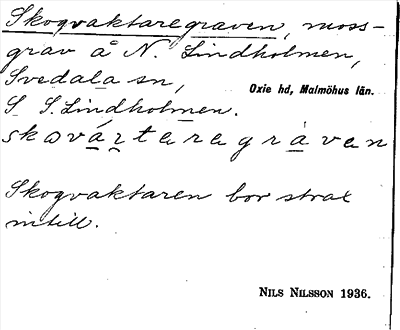 Skogvaktaregraven, moss-
grav å N. Lindholmen,
Svedala sn,
Oxie hd, Malmöhus län.
S S. Lindholmen.
skovártaregràven
Skogvaktaren bor strax
intill.
NILS NILSSON 1936.